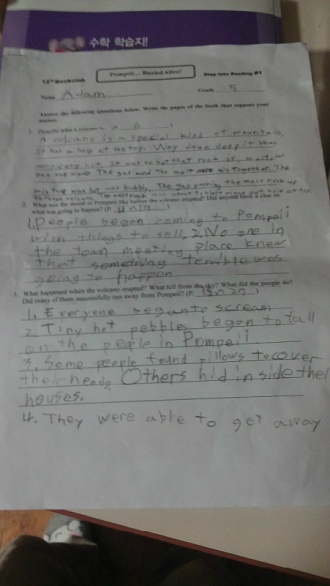 수학 학습지!
Pompeii... Buried Alive!
Step Into Reading #4
Name Adam
Grade 5
Answer the following questions below. Write the pages of the book that support your answer.
1. Describe what a volcano is.
A volcano is a special kind of mountain.
It has a hole at the top. Way down deep it
very hot. It so hot that rock
and bubbly. The gas
2. What was the town of Pompeii like before the volcano erupted? Did anyone have a clue
was going to happen? (P.
1. People began coming to Pompeii
with things to sell. 2. No one in
the town meeting place knew
that something terrible was
going to happen
3. What happened when the volcano erupted? What fell from the sky? What did the people do?
Did many of them successfully run away from Pompeii? (P.
1. Everyone began to scream
2. Tiny hot pebbles began to fall
on the people in Pompeii.
3. Some people found pillows to cover
their heads. Others hid inside their
houses.
4. They were able to get away